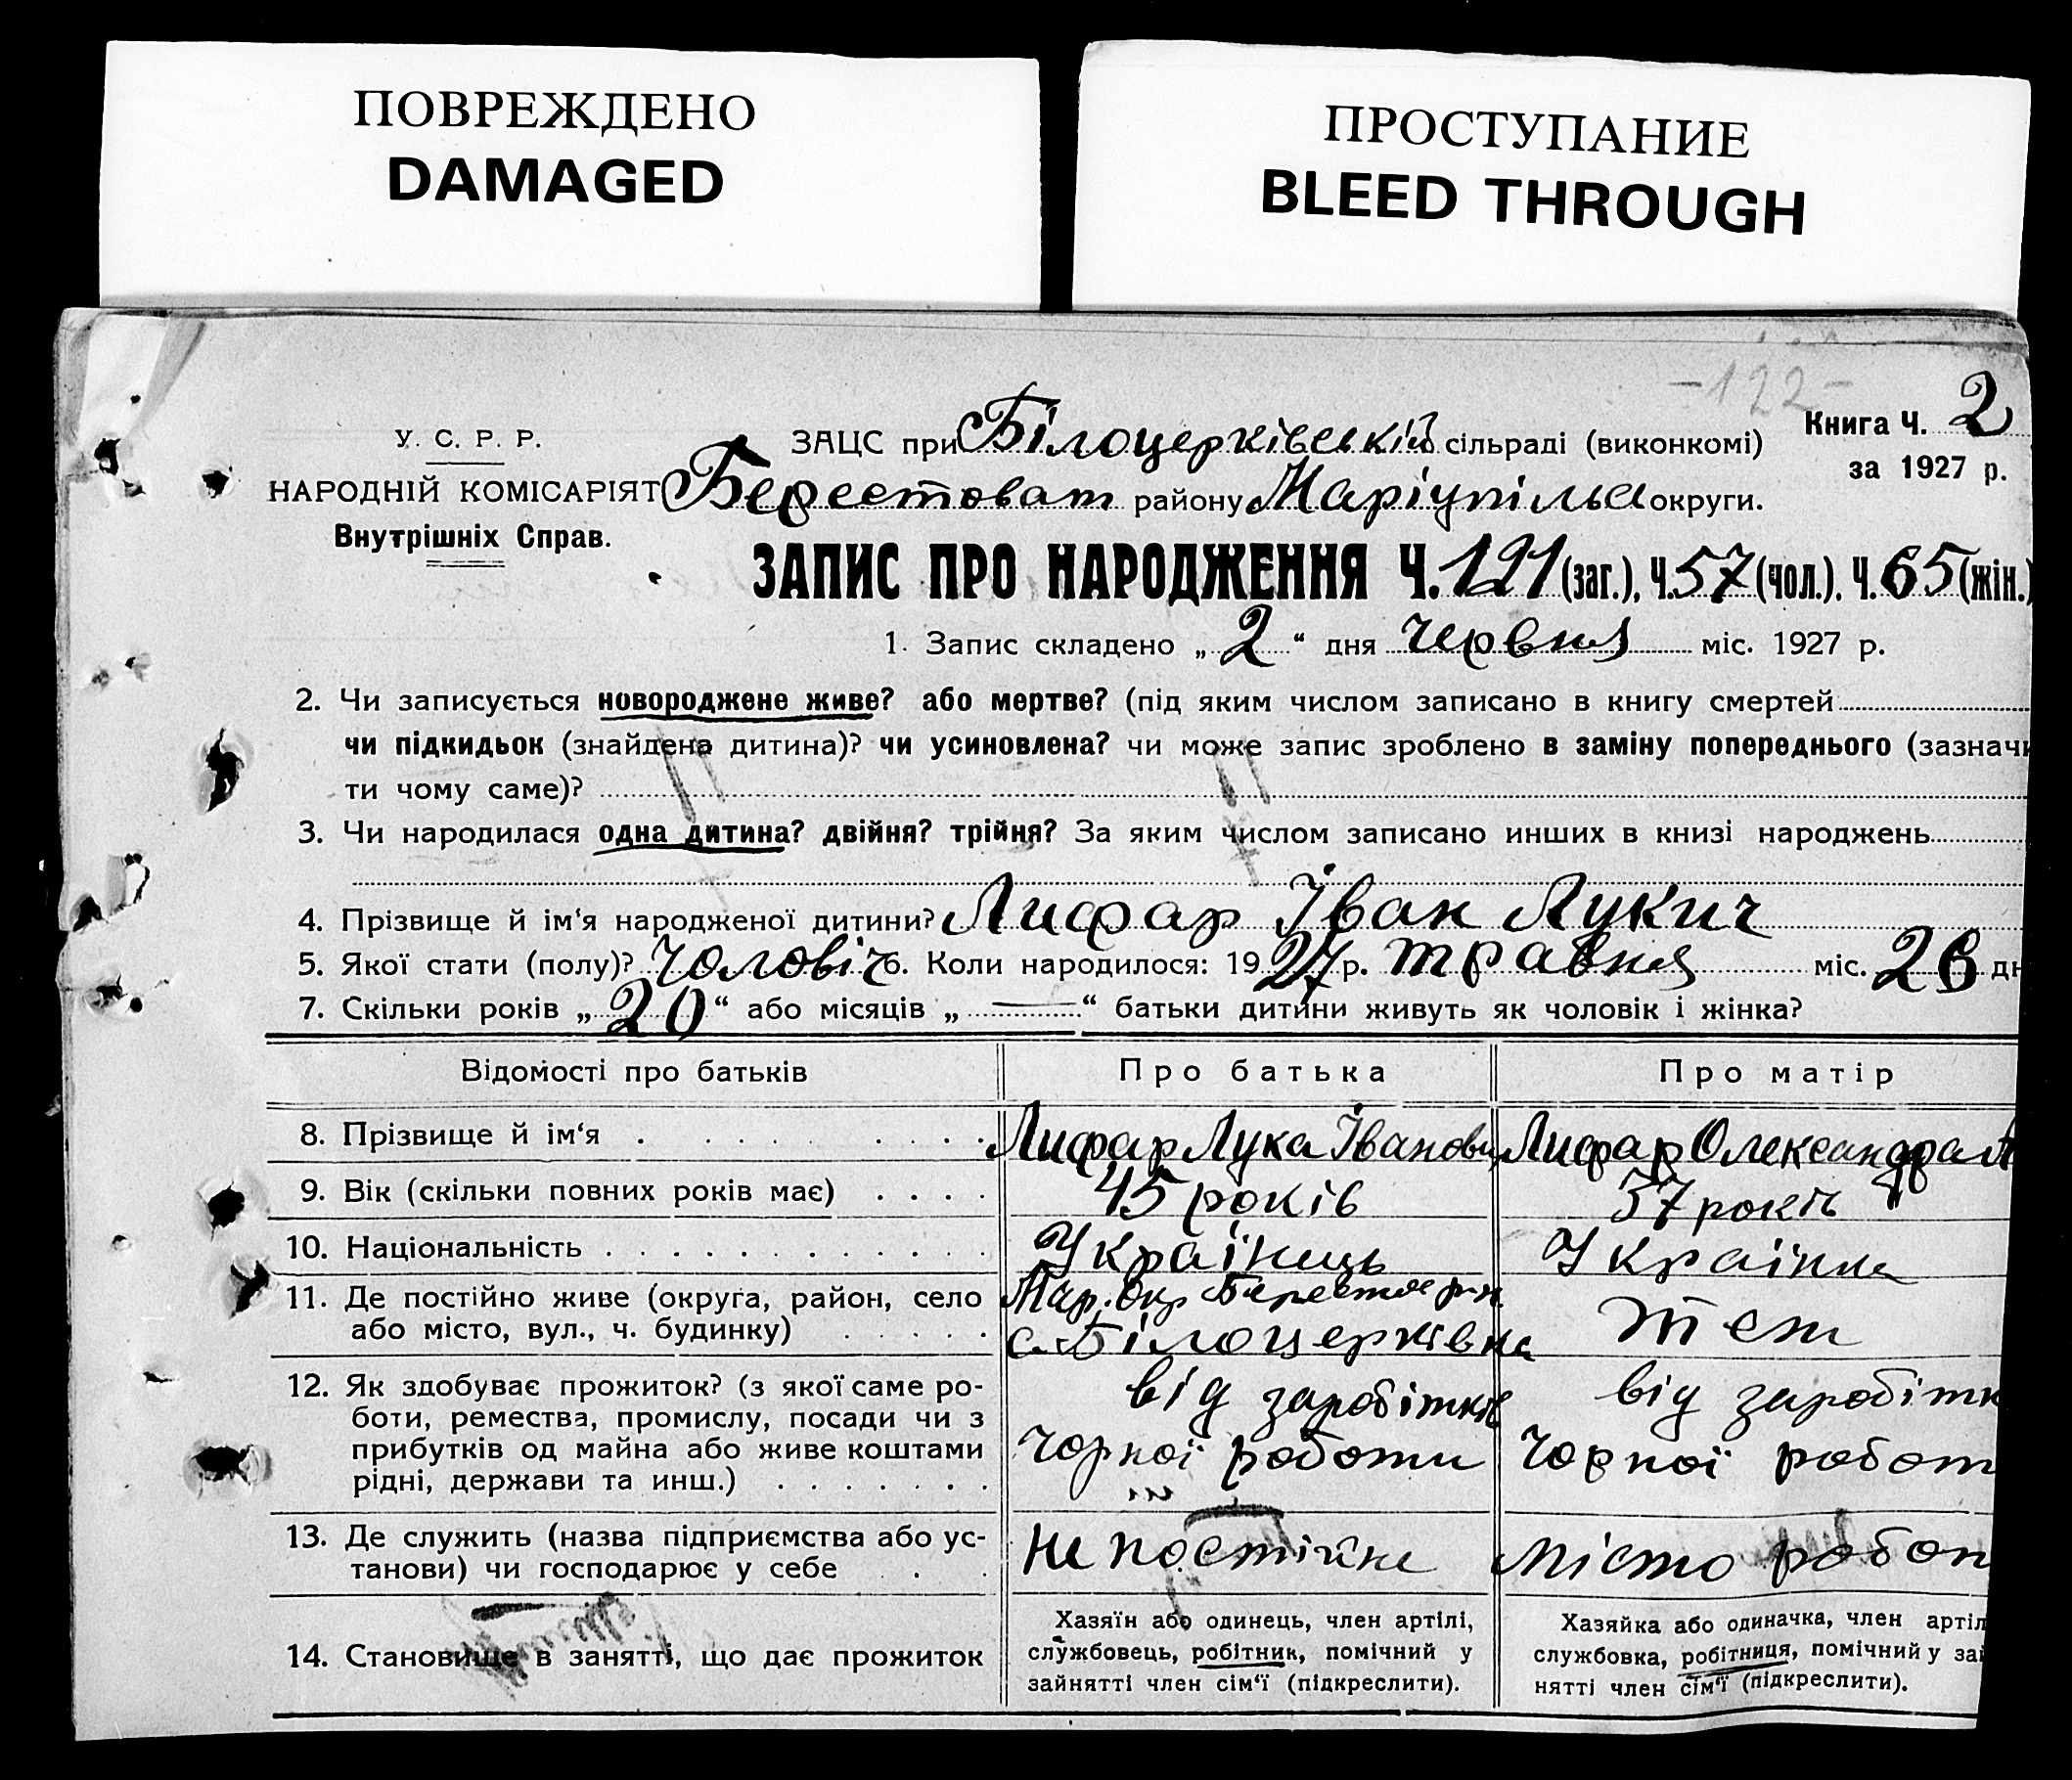 ПОВРЕЖДЕНО
DAMAGED
ПРОСТУПАНИЕ
BLEED THROUGH
-122-
Книга Ч. 2
за 1927 р.
У. С. Р. Р.
НАРОДНІЙ КОМІСАРІЯТ
Внутрішніх Справ.
ЗАЦС при Білоцерківській сільраді (виконкомі)
Берестоват району Маріупільс округи.
ЗАПИС ПРО НАРОДЖЕННЯ Ч. 121 (заг.), Ч. 57 (чол.), Ч. 65 (жін.)
1. Запис складено „ 2 “ дня червня міс. 1927 р.
2. Чи записується новороджене живе? або мертве? (під яким числом записано в книгу смертей
чи підкидьок (знайдена дитина)? чи усиновлена? чи може запис зроблено в заміну попереднього (зазначи
ти чому саме)?
3. Чи народилася одна дитина? двійня? трійня? За яким числом записано инших в книзі народжень
4. Прізвище й ім'я народженої дитини? Лифар Іван Лукич
5. Якої стати (полу)? чоловіч 6. Коли народилося: 1927 р. травня міс. 26 дн
7. Скільки років „ 20 “ або місяців „ — “ батьки дитини живуть як чоловік і жінка?
Відомості про батьків
Про батька
Про матір
8. Прізвище й ім'я
Лифар Лука Іванович
Лифар Олександра
9. Вік (скільки повних років має)
45 років
37 років
10. Національність
Українець
Українка
11. Де постійно живе (округа, район, село
або місто, вул., ч. будинку)
Мар. Окр Берестов р-н
с. Білоцерківка
теж
12. Як здобуває прожиток? (з якої саме ро-
боти, ремества, промислу, посади чи з
прибутків од майна або живе коштами
рідні, держави та инш.)
від заробітків
чорної роботи
від заробітк
чорної робот
13. Де служить (назва підприємства або ус-
танови) чи господарює у себе
не постійне
місто робот
14. Становище в занятті, що дає прожиток
Хазяїн або одинець, член артілі,
службовець, робітник, помічний у
зайнятті член сім'ї (підкреслити).
Хазяйка або одиначка, член артіл
службовка, робітниця, помічний у зай
нятті член сім'ї (підкреслити).